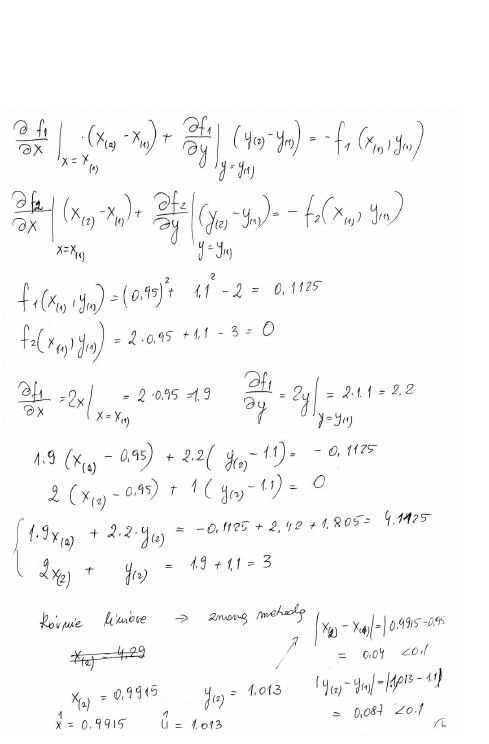 ∂f1/∂x |x = x(1) · (x(2) - x(1)) + ∂f1/∂y |y = y(1) (y(2) - y(1)) = - f1 (x(1), y(1))
∂f2/∂x |x=x(1) (x(2) - x(1)) + ∂f2/∂y |y = y(1) (y(2) - y(1)) = - f2 (x(1), y(1))
f1 (x(1), y(1)) = (0,95)² + 1,1² - 2 = 0,1125
f2 (x(1), y(1)) = 2·0,95 + 1,1 - 3 = 0
∂f1/∂x = 2x |x = x(1) = 2·0.95 = 1,9 ∂f1/∂y = 2y |y = y(1) = 2·1.1 = 2,2
1.9 (x(2) - 0,95) + 2.2 (y(2) - 1.1) = - 0,1125
2 (x(2) - 0,95) + 1 (y(2) - 1.1) = 0
1.9 x(2) + 2.2· y(2) = -0,1125 + 2,42 + 1,805 = 4.1125
2x(2) + y(2) = 1,9 + 1,1 = 3
Równie liniowe → znaną metodą
|x(2) - x(1)| = |0,9915 - 0,95
= 0.04 < 0.1
x(2) = 4.29
x(2) = 0,9915 y(2) = 1,013
|y(2) - y(1)| = |1,013 - 1.1|
= 0,087 < 0.1
x = 0.9915 y = 1.013